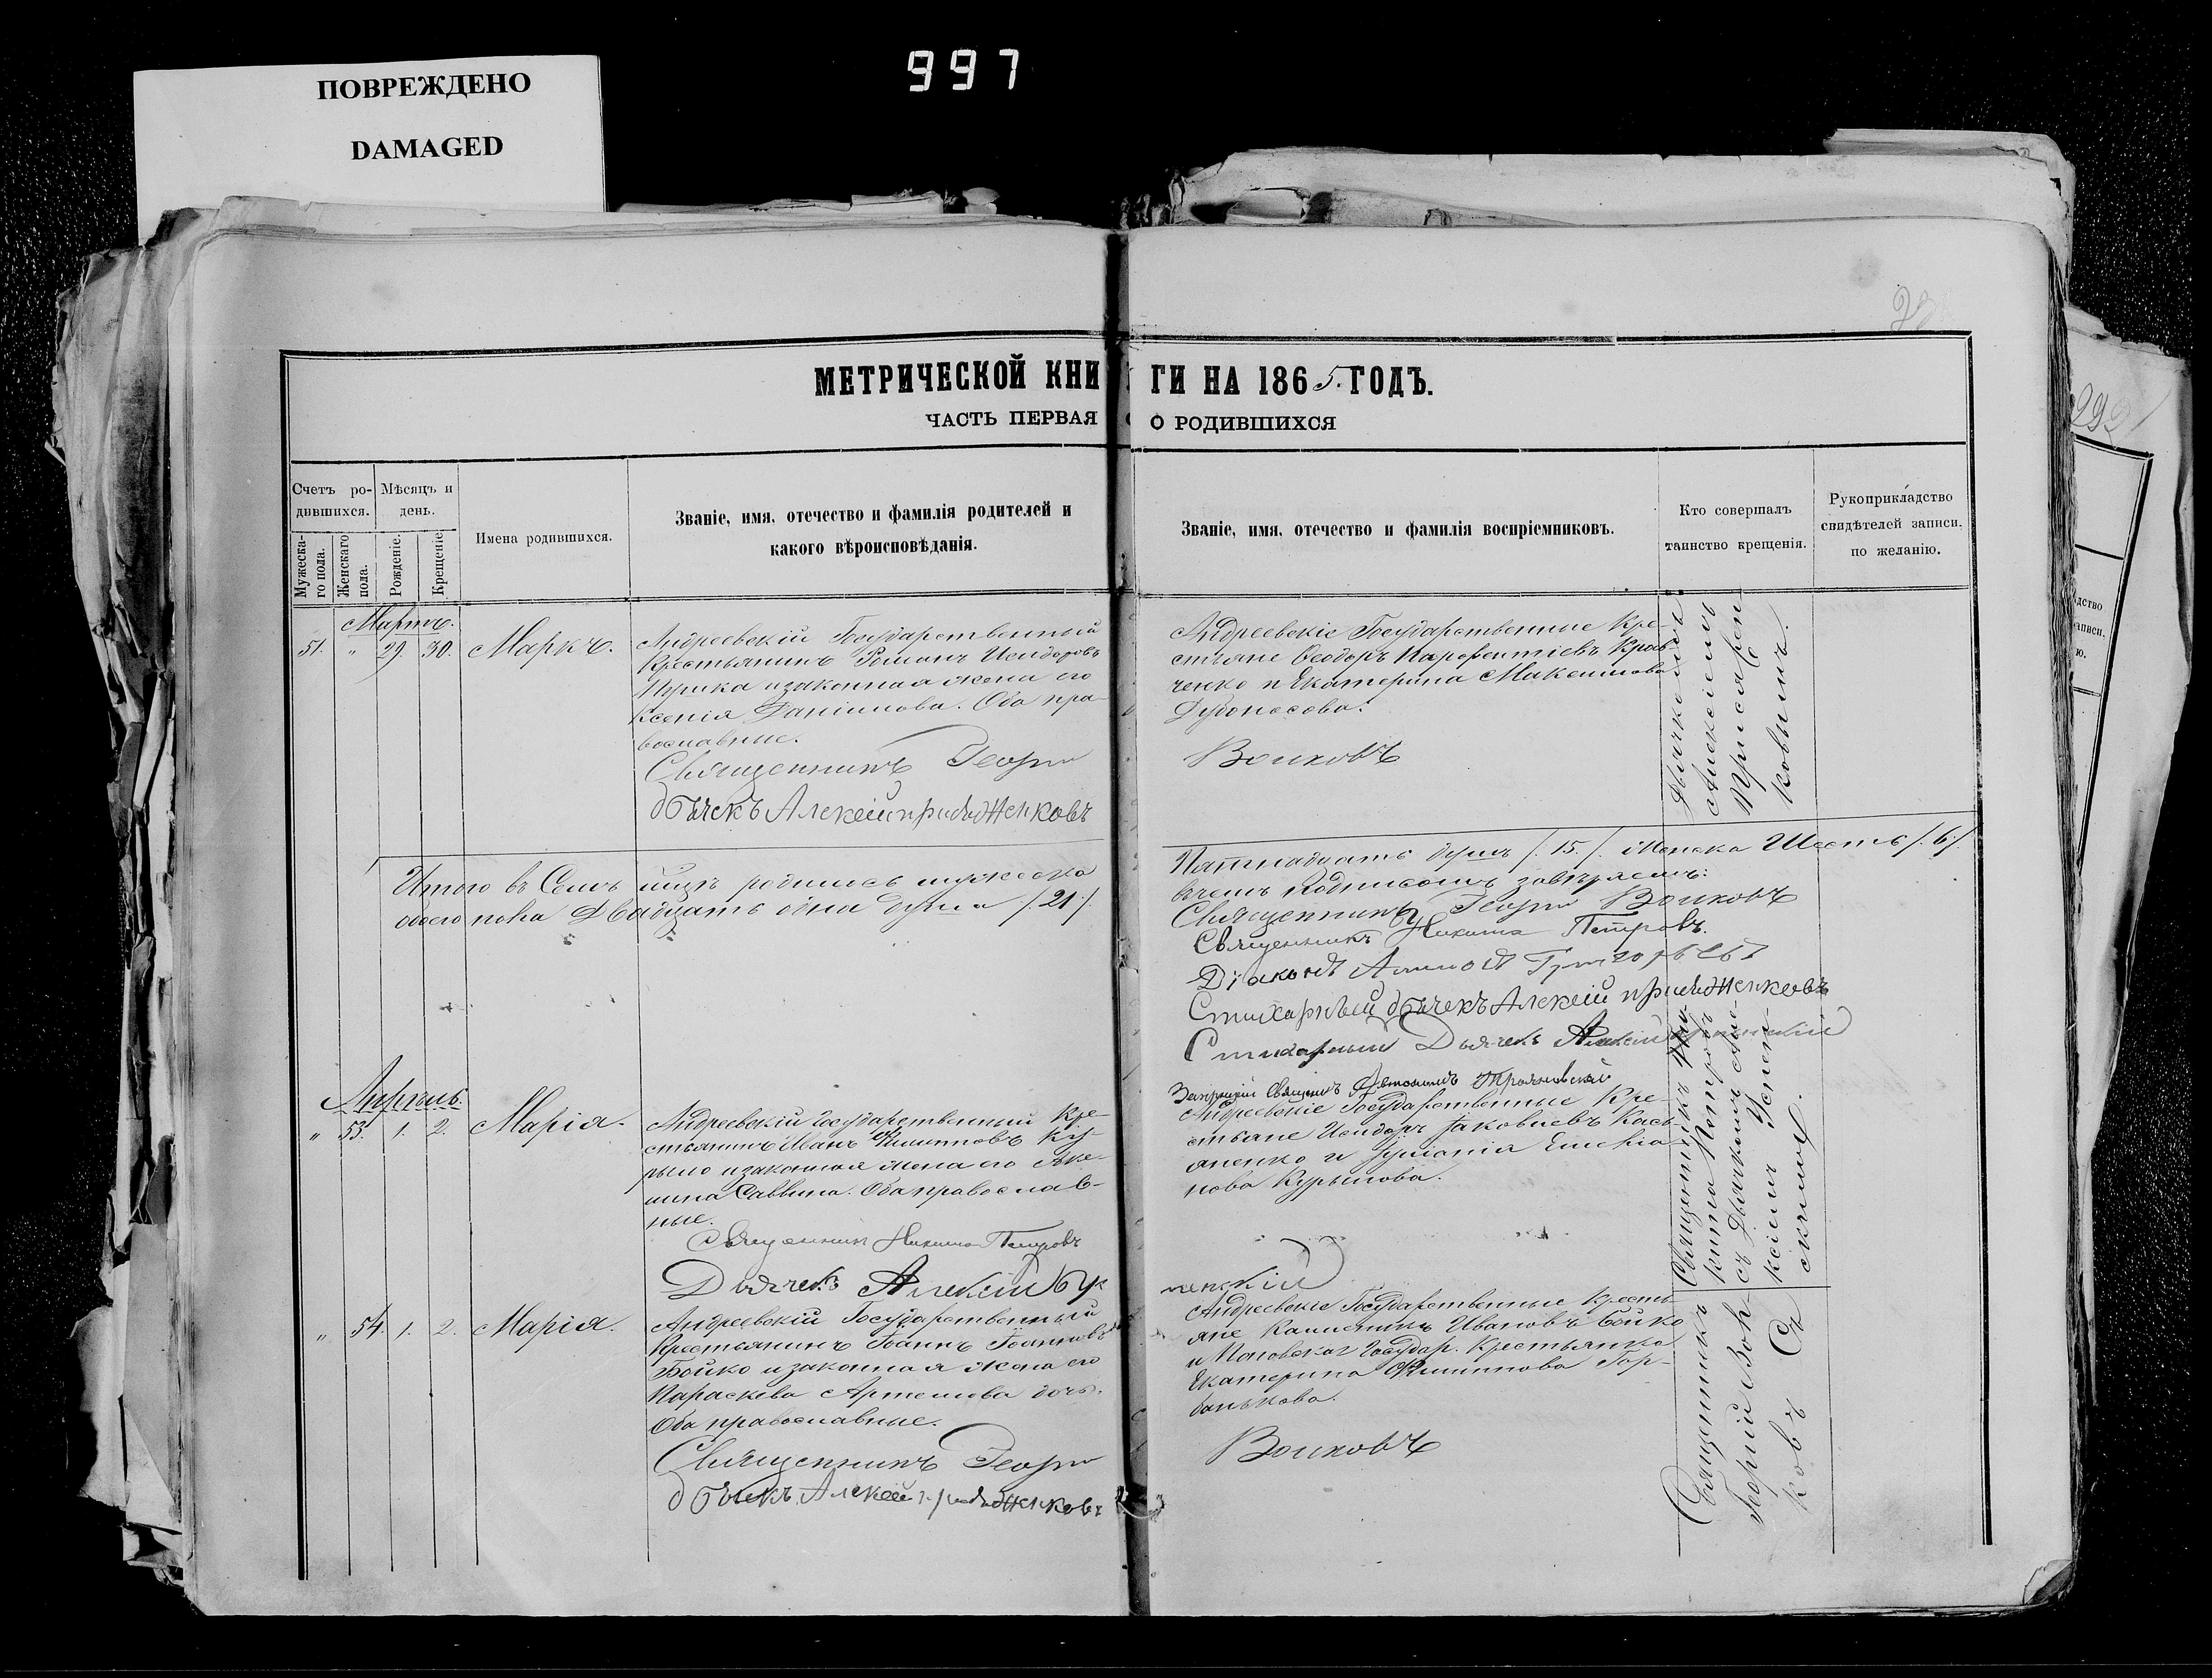 ПОВРЕЖДЕНО
DAMAGED
997
292
МЕТРИЧЕСКОЙ КНИГИ НА 1865. ГОДЪ.
ЧАСТЬ ПЕРВАЯ О РОДИВШИХСЯ
Счетъ ро-
дившихся.
Мужеска-
го пола.
Женскаго
пола.
Мѣсяцъ и
день.
Рожденіе.
Крещеніе
Имена родившихся.
Званіе, имя, отечество и фамилія родителей и
какого вѣроисповѣданія.
Званіе, имя, отечество и фамилія воспріемниковъ.
Кто совершалъ
таинство крещенія.
Рукоприкладство
свидѣтелей записи,
по желанію.
Мартъ.
51. " 29. 30. Маркъ.
Андреевскій Государственный
Крестьянинъ Романъ Исидоровъ
и законная жена его
Ксенія Даніилова. Оба пра-
вославные.
Священникъ Георгій
дьячекъ Алексій
Андреевскіе Государственные Кре-
стьяне Феодоръ Парфентіевъ Крав-
ченко и Екатерина Максимова
Дубоносова.
Волковъ
Дьячкомъ
Алексіемъ
Итого въ Семъ мцѣ родилось мужеска
обоего пола Двадцать одна душа /.21./
Пятнадцать душъ /.15./. Женска Шесть /.6./
въ чемъ подписомъ завѣряемъ:
Священникъ Георгій Волковъ
Священникъ Никита Петровъ.
Діаконъ
Стихарный дьячекъ Алексій
Стихарный Дьячекъ Алексій
Священъ
Апрѣль.
" 53. 1. 2. Марія.
Андреевскій Государственный Кре-
стьянинъ Иванъ Филиповъ Ку-
рыло и законная жена его Аке-
лина Саввина. Оба православ-
ные.
Священникъ Никита Петровъ
Дьячекъ Алексій
Андреевскіе Государственные Кре-
стьяне Исидоръ Іаковлевъ Касья-
ненко и
Курылова.
Священникъ Ни-
кита Петровъ
съ Дьячкомъ Але-
ксіемъ Успен-
скимъ.
" 54. 1. 2. Марія.
Андреевскій Государственный
Крестьянинъ Іоаннъ Іоанновъ
Бойко и законная жена его
Параскева Артемова дочь.
Оба православные.
Священникъ Георгій
дьячекъ Алексій
Андреевскіе Государственные Кресть-
яне Ивановъ Бойко
и Государ. Крестьянка
Екатерина Филиппова Гор-
банькова.
Волковъ
Священникъ
Георгій Вол-
ковъ Съ